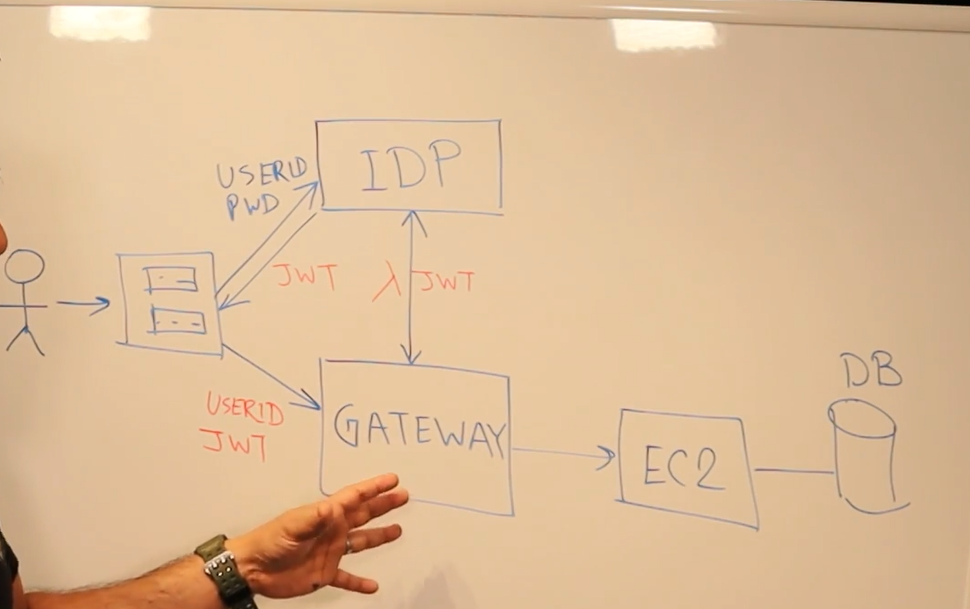 IDP
USERID
PWD
JWT
λ JWT
USERID
JWT
GATEWAY
EC2
DB